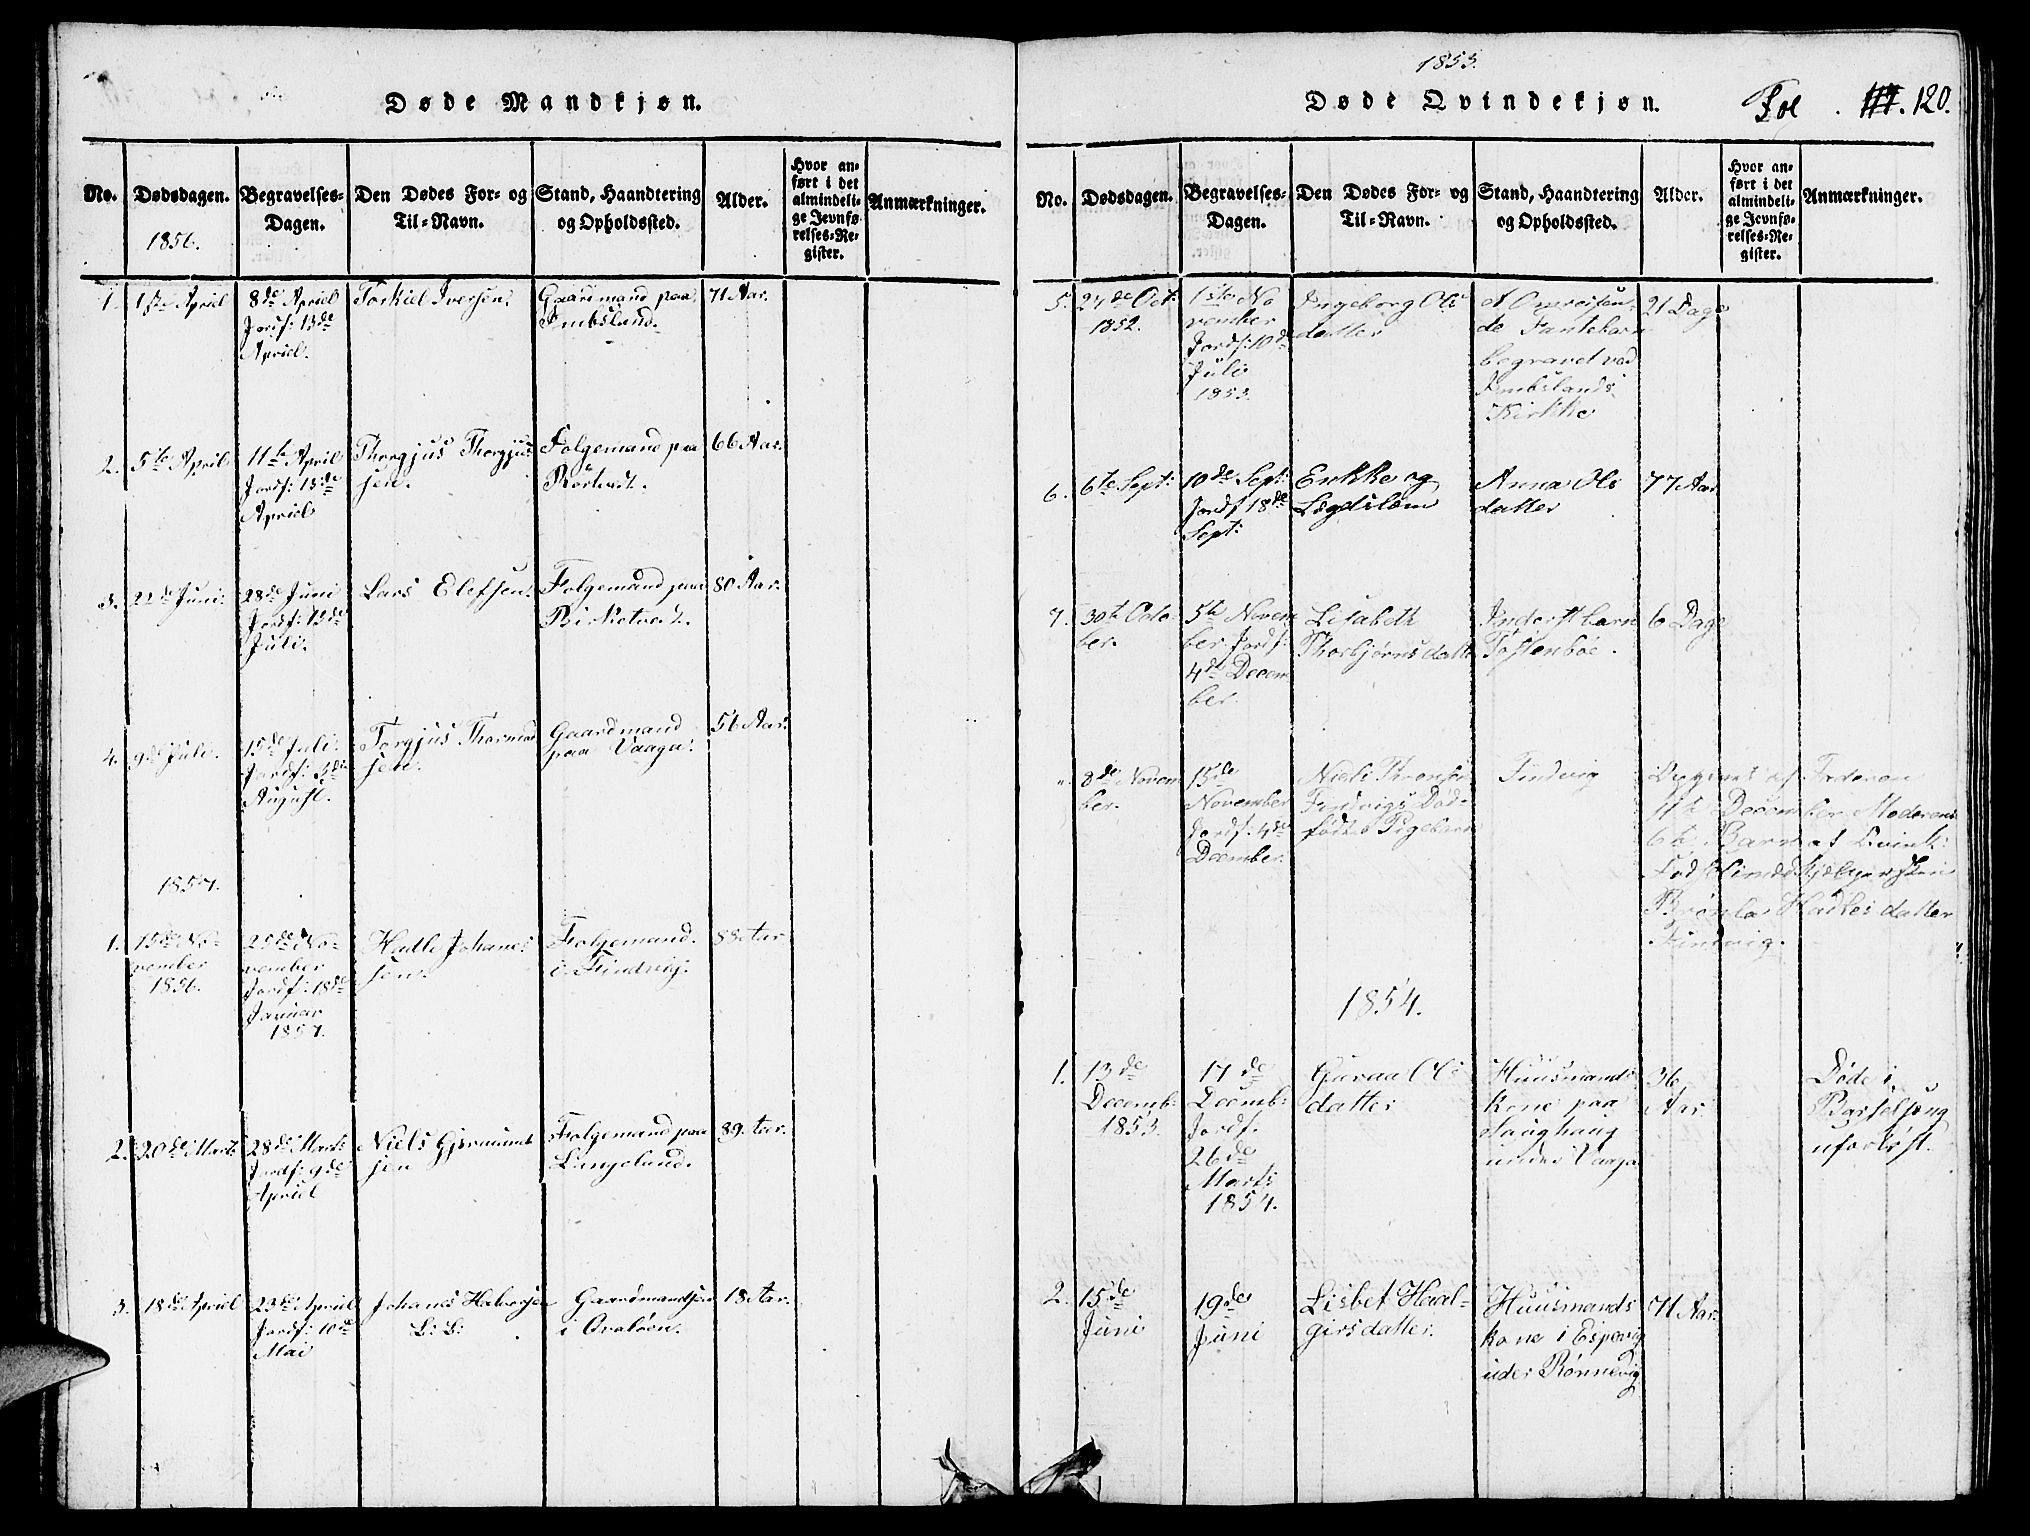 Døde Mandkjøn.
No.
Dødsdagen.
1856.
Begravelses-
Dagen.
Den Dødes For- og
Til-Navn.
Stand, Haandtering
og Opholdssted.
Alder.
Hvor an-
ført i det
almindeli-
ge Jevnfø-
relses-Re-
gister.
Anmærkninger.
1.
1ste Apriel
8de Apriel
Jordf: 13de
Apriel.
Torkiel Iversen.
Gaardmand paa
Imbsland.
71 Aar.
2.
5te April
11te April
Jordf: 13de
Apriel
Thorgjus Thorgjus
sen.
Folgemand paa
66 Aar.
3.
22de Juni.
28de Juni
Jordf: 13de
Juli.
Lars Elefsen.
Folgemand paa
Birketvedt.
80 Aar.
4.
9de Juli.
15de Juli.
Jordf: 3de
August.
Torgjus Thormod
sen.
Gaardmand
paa Vaaga.
56 Aar.
1857.
1.
15de No-
vember
1856.
25de No-
vember
Jordf: 18de
Januar
1857.
Hadle Johanes
sen.
Folgemand.
i Findvig.
88 Aar
2.
20de Marts
28de Marts
Jordf: 9de
Apriel
Niels Gjermund
sen
Folgemand paa
Lingeland.
89 Aar.
3.
18de Apriel
23de Apriel
Jordf: 10de
Mai
Johanes Halvorsen
Gaardmandsøn
i
18 Aar.
1853.
Døde Qvindekjøn.
Fol. 120.
No.
Dødsdagen.
Begravelses-
Dagen.
Den Dødes For- og
Til-Navn.
Stand, Haandtering
og Opholdssted.
Alder.
Hvor an-
ført i det
almindeli-
ge Jevnfø-
relses-Re-
gister.
Anmærkninger.
5.
24de Oct:
1852.
1ste No
vember
Jordf: 10de
Juli
1853.
Ingeborg Ols
datter
et Omreisen-
de Fantebarn
begravet ved
Imbslands
Kirkke
21 Dage
6.
6te Sept:
10de Sept:
Jordf 18de
Sept:
Enkke og
Lægdslem
Anna Ols
datter
77 Aar
7.
30te Octo-
ber.
5te Novem
ber Jordf:
4de Decem
ber.
Lisabeth
Thorbjørnsdatter
Inderstbarn
Tostenbøe.
6 Dage
"
8de Novem
ber.
15de
November
Jordf: 4de
December.
Niels
Findvigs Død-
fødte Pigebarn
Findvig
af Faderen
11te December Moderens
6te Barn
Hadlesdatter
Findvig.
1854.
1.
13de
Decemb:
1853.
17de
Decemb:
Jordf.
26de
Marts
1854.
Guraa Ols
datter
Huusmands
kone paa
Saughaug
under Vaaga
36
Aar.
Døde i
Barselseng
uforløst.
2.
15de
Juni
19de
Juni
Lisbet Haal-
girsdatter.
Huusmands
kone i Espevig
under Rønnevig
71 Aar.